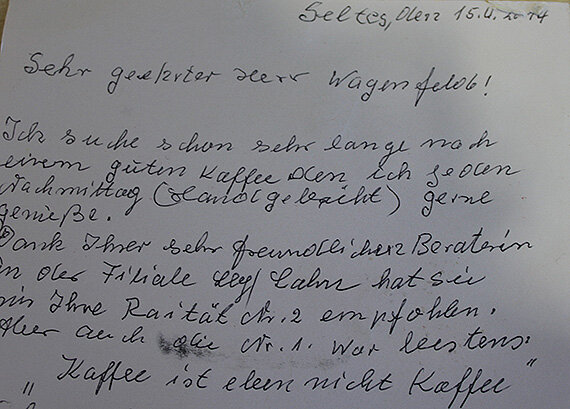 Selters, den 15.4.2014
Sehr geehrter Herr Wagenfeld!
Ich suche schon sehr lange nach
einem guten Kaffee den ich jeden
Nachmittag (Handgebrüht) gerne
genieße.
Dank Ihrer sehr freundlichen Beraterin
in der Filiale Lahn hat sie
mir Ihre Rarität Nr. 2 empfohlen.
Aber auch die Nr. 1. war bestens.
„Kaffee ist eben nicht Kaffee"